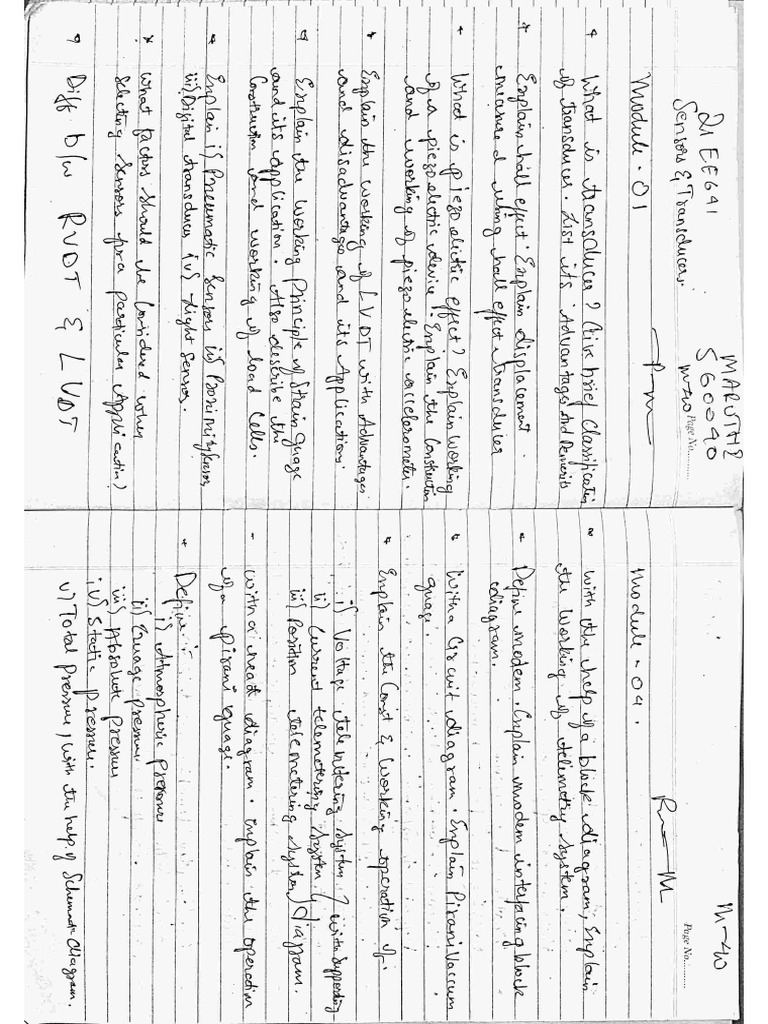 21EE641
Sensors & Transducers.
MARUTHI
560040
M-40
Page No.
Module-01
* What is transducer? Give brief Classification
of Transducer. List its Advantages And Demerits
* Explain hall effect. Explain displacement
measured using hall effect transducer
* What is piezo electric effect? Explain working
of a piezo electric device. Explain the Construction
and working of piezo electric accelerometer.
* Explain the working of LVDT with Advantages
and disadvantages and its Applications.
* Explain the working Principle of Strain guage
and its application. Also describe the
Construction and working of load Cells.
* Explain i) Pneumatic Sensors ii) Proximity Sensor
iii) Digital transducer iv) Light Sensor.
* What factors should be Considered when
Selecting Sensors for a particular Application?
* Diff b/w RVDT & LVDT
M-40
Page No.
Module-04.
* With the help of a block diagram, Explain
the working of telimetry System.
* Define modem. Explain modem interfacing block
diagram.
* With a Circuit diagram. Explain Pirani Vaccum
guage.
* Explain the Const & Working operation of:-
i) Voltage telemetering System
ii) Current telemetering System
iii) Position telemetering System
with supporting
diagram.
- With a neat diagram. Explain the operation
of a pirani guage.
* Define :-
i) Atmospheric pressure
ii) Guage pressure
iii) Absolute pressure
iv) Static pressure.
v) Total pressure, with the help of Schematic diagram.